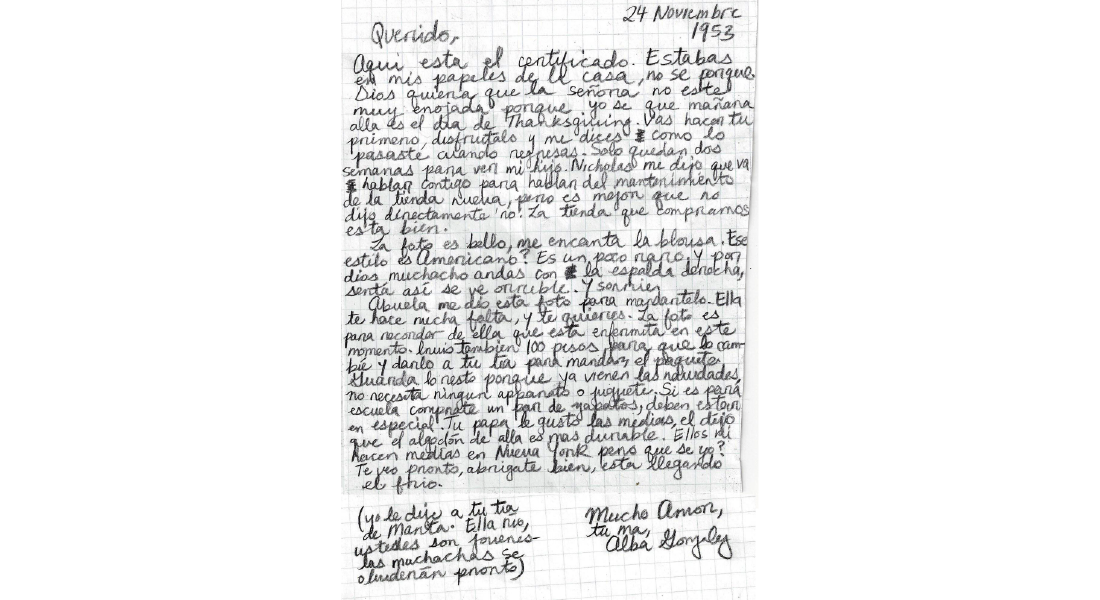 24 Noviembre
1953
Querido,
Aqui esta el certificado. Estabas
en mis papeles de la casa, no se porque.
Dios quiera que la señora no este
muy enojada porque yo se que mañana
alla es el dia de Thanksgiving. Vas hacer tu
primero, disfrutalo y me dices como lo
pasaste cuando regresas. Solo quedan dos
semanas para ver mi hijo. Nicholas me dijo que va
hablar contigo para hablar del mantenimiento
de la tienda nueva, pero es mejor que no
dijo directamente 'no'. La tienda que compramos
esta bien.
La foto es bello, me encanta la blousa. Ese
estilo es Americano? Es un poco raro, y por
dios muchacho andas con la espalda derecha,
senta así se ve orrible. Y sonrrier
Abuela me dio esta foto para mandartelo. Ella
te hace mucha falta, y te quieres. La foto es
para recordar de ella que esta enfermita en este
momento. Envio tambien 100 pesos para que lo cam-
bie y darlo a tu tía para mandar el paquete.
Guarda lo resto porque ya vienen las navidades,
no necesita ningun apparato o juguete. Si es para
escuela comprate un par de zapatos, deben estar
en especial. Tu papa le gusto las medias, el dijo
que el algodón de alla es mas durable. Ellos ni
hacen medias en Nueva York pero que se yo?
Te veo pronto, abrigate bien, esta llegando
el frio.
(yo le dije a tu tía
de Marita. Ella rio,
ustedes son jovenes-
las muchachas se
olviderán pronto)
Mucho Amor,
tu ma,
Alba Gonzalez